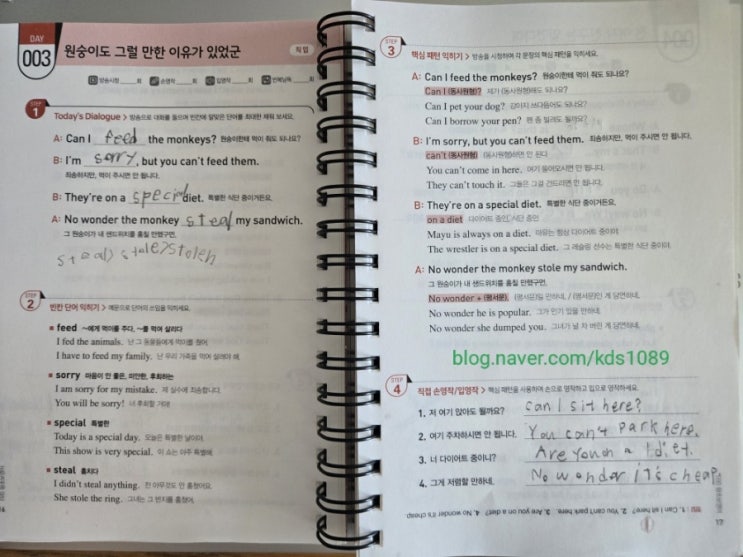 DAY
003
원숭이도 그럴 만한 이유가 있었군
직업
방송시청 __회 손영작 __회 입영작 __회 반복낭독 __회
STEP 1
Today's Dialogue > 방송으로 대화를 들으며 빈칸에 알맞은 단어를 최대한 채워 보세요.
A: Can I feed the monkeys? 원숭이한테 먹이 줘도 되나요?
B: I'm sorry, but you can't feed them.
죄송하지만, 먹이 주시면 안 됩니다.
B: They're on a special diet. 특별한 식단 중이거든요.
A: No wonder the monkey steal my sandwich.
그 원숭이가 내 샌드위치를 훔칠 만했구먼.
steal > stole > stolen
STEP 2
빈칸 단어 익히기 > 예문으로 단어의 쓰임을 익히세요.
feed ~에게 먹이를 주다, ~를 먹여 살리다
I fed the animals. 난 그 동물들에게 먹이를 줬어.
I have to feed my family. 난 우리 가족을 먹여 살려야 해.
sorry 마음이 안 좋은, 미안한, 후회하는
I am sorry for my mistake. 제 실수에 죄송합니다.
You will be sorry! 너 후회할 거야!
special 특별한
Today is a special day. 오늘은 특별한 날이야.
This show is very special. 이 쇼는 아주 특별해.
steal 훔치다
I didn't steal anything. 전 아무것도 안 훔쳤어요.
She stole the ring. 그녀는 그 반지를 훔쳤어.
STEP 3
핵심 패턴 익히기 > 방송을 시청하며 각 문장의 핵심 패턴을 익히세요.
A: Can I feed the monkeys? 원숭이한테 먹이 줘도 되나요?
Can I (동사원형)? 제가 (동사원형)해도 되나요?
Can I pet your dog? 강아지 쓰다듬어도 되나요?
Can I borrow your pen? 펜 좀 빌려도 될까요?
B: I'm sorry, but you can't feed them. 죄송하지만, 먹이 주시면 안 됩니다.
can't (동사원형) (동사원형)하면 안 된다
You can't come in here. 여기 들어오시면 안 됩니다.
They can't touch it. 그들은 그걸 건드리면 안 됩니다.
B: They're on a special diet. 특별한 식단 중이거든요.
on a diet 다이어트 중인, 식단 중인
Mayu is always on a diet. 마유는 항상 다이어트 중이야.
The wrestler is on a special diet. 그 레슬링 선수는 특별한 식단 중이야.
A: No wonder the monkey stole my sandwich.
그 원숭이가 내 샌드위치를 훔칠 만했구먼.
No wonder + (평서문). (평서문)일 만하네. / (평서문)인 게 당연하네.
No wonder he is popular. 그가 인기 있을 만하네.
No wonder she dumped you. 그녀가 널 차 버린 게 당연하네.
blog.naver.com/kds1089
STEP 4
직접 손영작/입영작 > 핵심 패턴을 사용하며 손으로 영작하고 입으로 영작하세요.
1. 저 여기 앉아도 될까요? Can I sit here?
2. 여기 주차하시면 안 됩니다. You can't park here.
3. 너 다이어트 중이니? Are you on a diet.
4. 그게 저렴할 만하네. No wonder it's cheap.
1. Can I sit here? 2. You can't park here. 3. Are you on a diet? 4. No wonder it's cheap.
17